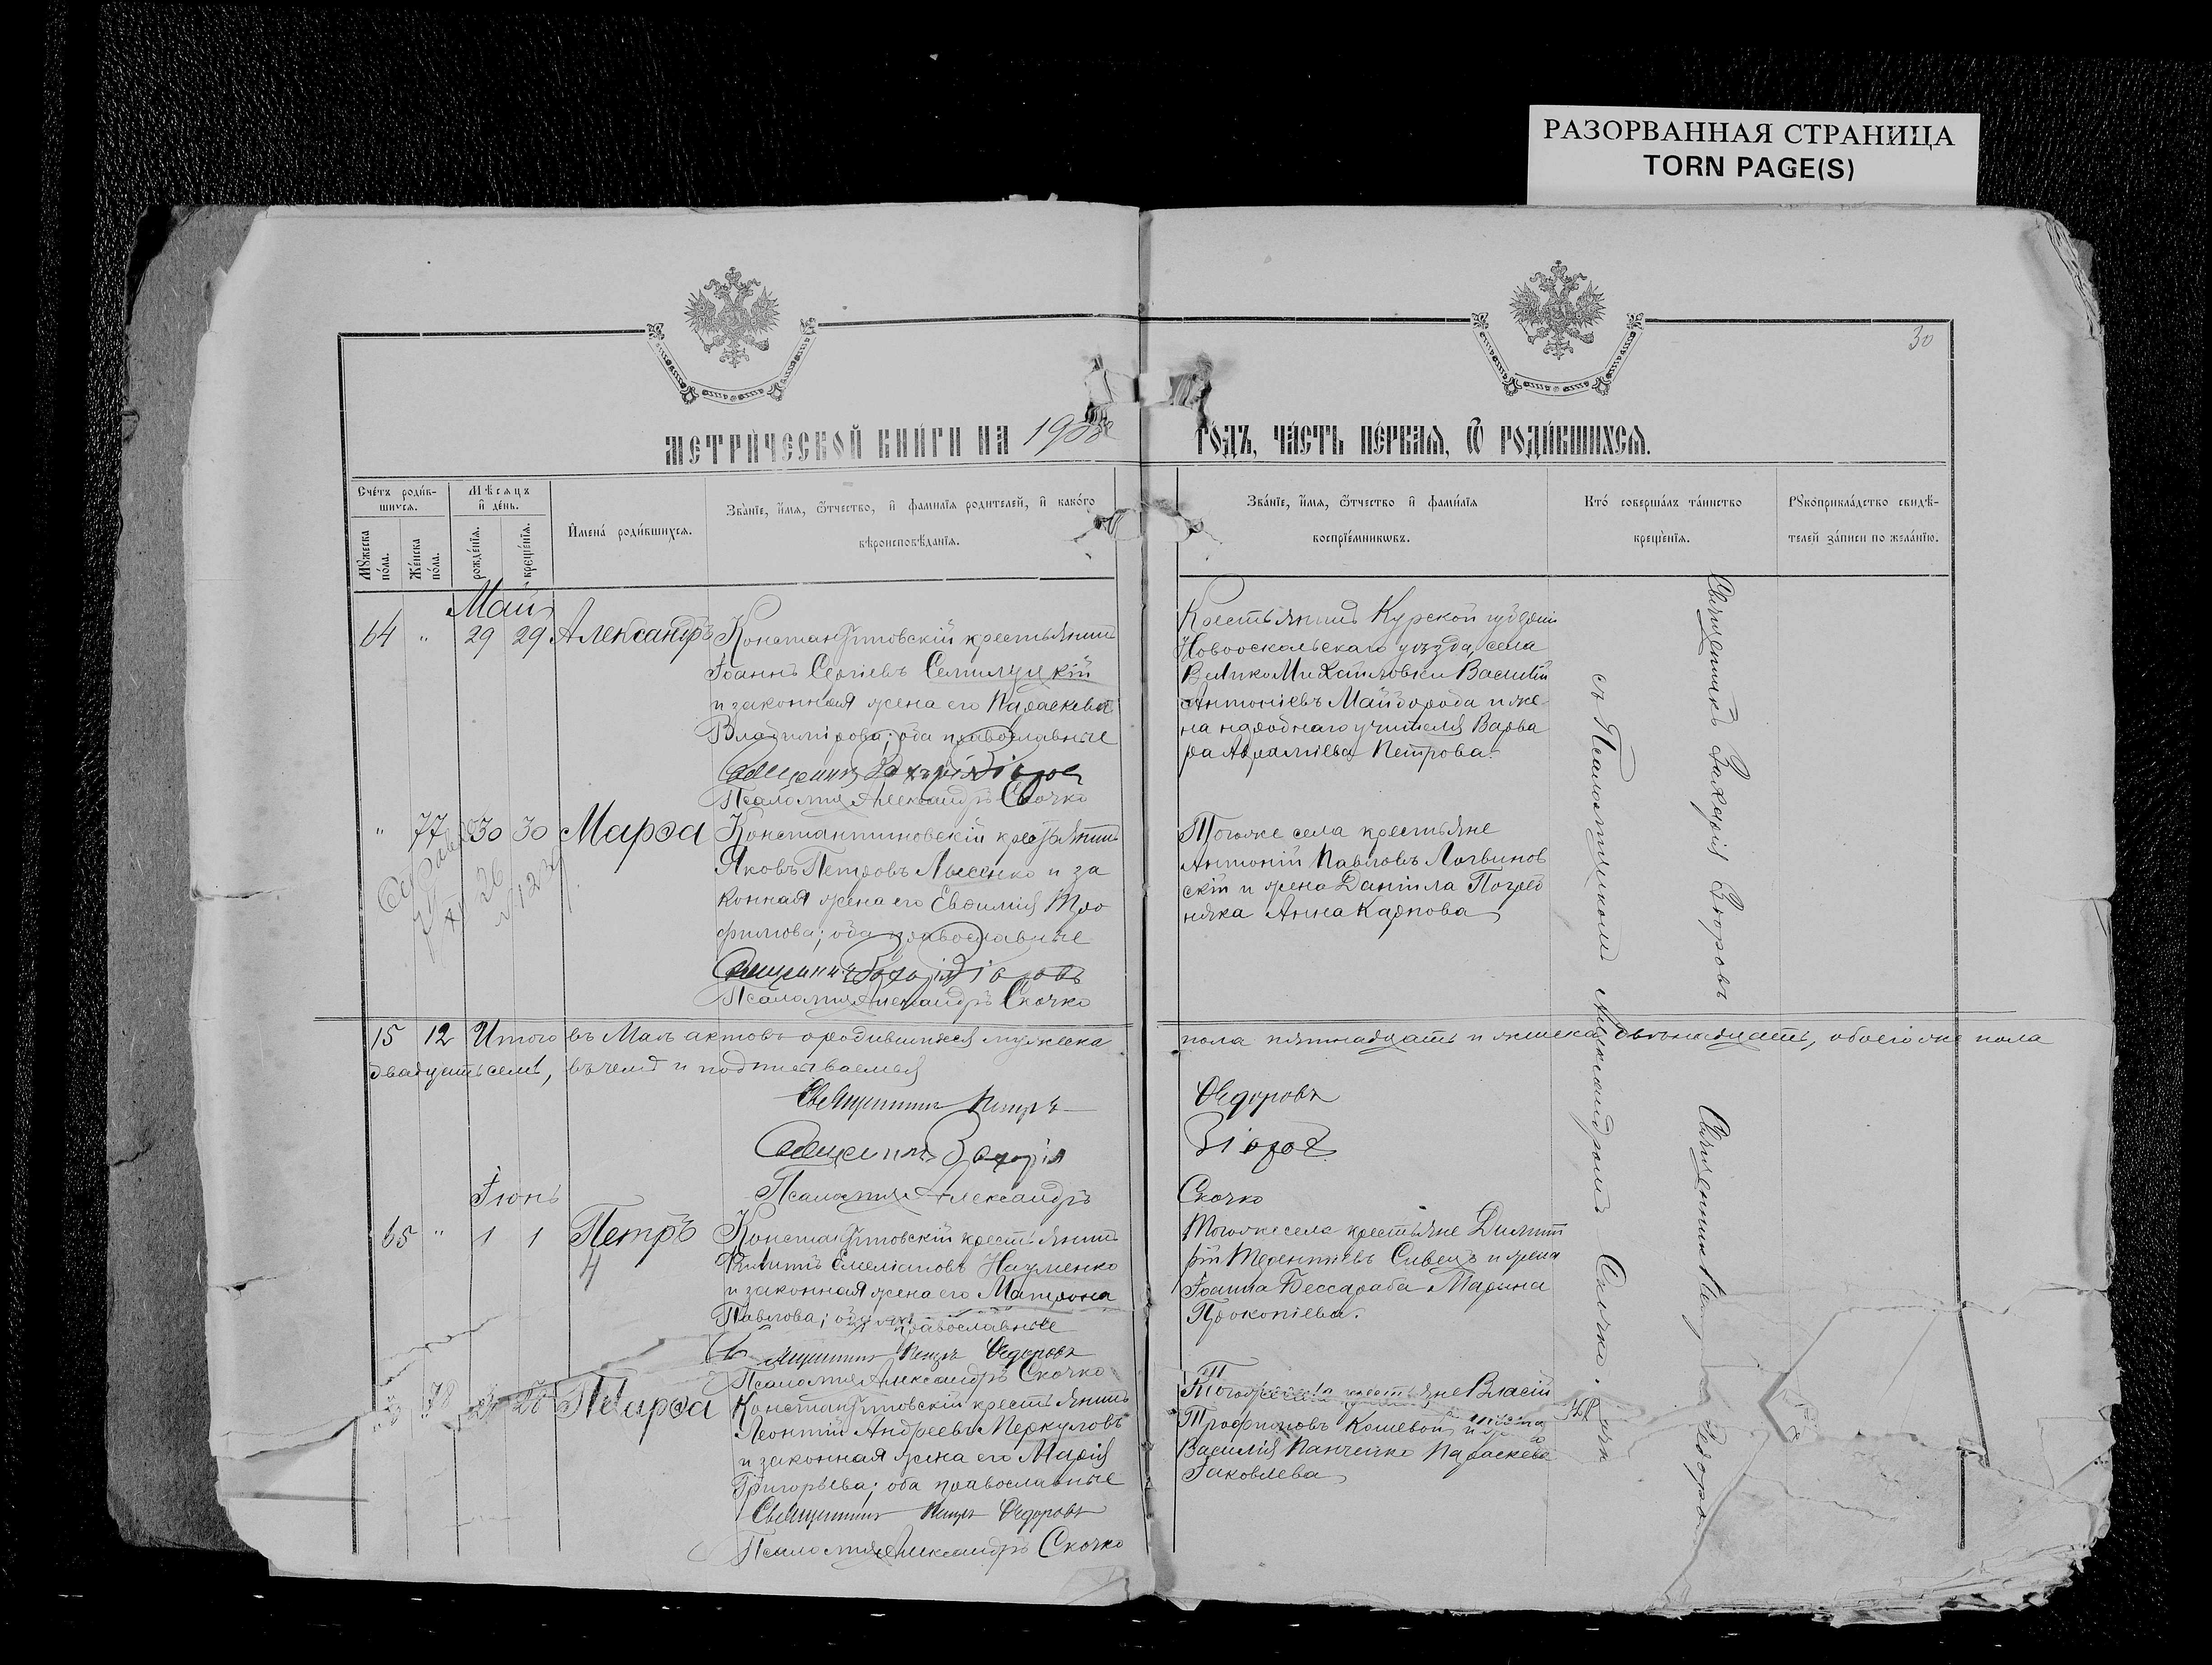 РАЗОРВАННАЯ СТРАНИЦА
TORN PAGE(S)
30
МЕТРИЧЕСКОЙ КНИГИ НА 1908 ГОДЪ, ЧАСТЬ ПЕРВАЯ, Ѿ РОДИВШИХСЯ.
Счётъ родив-
шихся.
Мѹжеска
пола.
Женска
пола.
Мѣсяцъ
и день.
рожденія.
крещенія.
Имена родившихся.
Званіе, имя, ѿтчество, и фамилія родителей, и какого
вѣроисповѣданія.
Званіе, имя, ѿтчество и фамилія
воспріемниковъ.
Кто совершалъ таинство
крещенія.
Рѹкоприкладство свидѣ-
телей записи по желанію.
Май
64 " 29 29 Александръ
Константиновскій крестьянинъ
Іоаннъ Сергіевъ Семилуцкій
и законная жена его Параскева
Владимірова; оба православные
Священникъ Захарія Зіоровъ
Псаломщикъ Александръ Скочко
Крестьянинъ Курской губерніи
Новооскольскаго уѣзда, села
ВеликоМихайловки Василій
Антоніевъ Майборода и же-
на народнаго учителя Варва
ра Авраміева Петрова.
" 77 30 30 Марѳа
Константиновскій крестьянинъ
Яковъ Петровъ Лысенко и за
конная жена его Евѳимія Тро
фимова; оба православные
Священникъ Захарія Зіоровъ
Псаломщикъ Александръ Скочко
Тогоже села крестьяне
Антоній Павловъ Логвинов
скій и жена Даніила Погреб
няка Анна Карпова
15 12 Итого въ Маѣ актовъ о родившихся мужеска пола пятнадцать и женска двѣнадцать, обоего же пола
двадцать семь, въ чемъ и подписываемся
Священникъ Петръ Ѳедоровъ
Священникъ Захарія Зіоровъ
Псаломщикъ Александръ Скочко
Іюнь
65 " 1 1 Петръ
4
Константиновскій крестьянинъ
Емеліановъ Науменко
и законная жена его Матрона
Павлова; оба православные
Священникъ Петръ Ѳедоровъ
Псаломщикъ Александръ Скочко
Тогоже села крестьяне Димит
рій Терентіевъ Сивецъ и жена
Іоанна Бессараба Марина
Прокопіева.
78 Марѳа
Константиновскій крестьянинъ
Леонтій Андреевъ Меркуловъ
и законная жена его Марія
Григорьева; оба православные
Священникъ Петръ Ѳедоровъ
Псаломщикъ Александръ Скочко
Тогоже села крестьяне Власій
Трофимовъ Кошевой и жена
Василія Панченко Параскева
Іаковлева
Священникъ Захарія Зіоровъ
съ Псаломщикомъ Александромъ Скочко.
Священникъ Петръ Ѳедоровъ